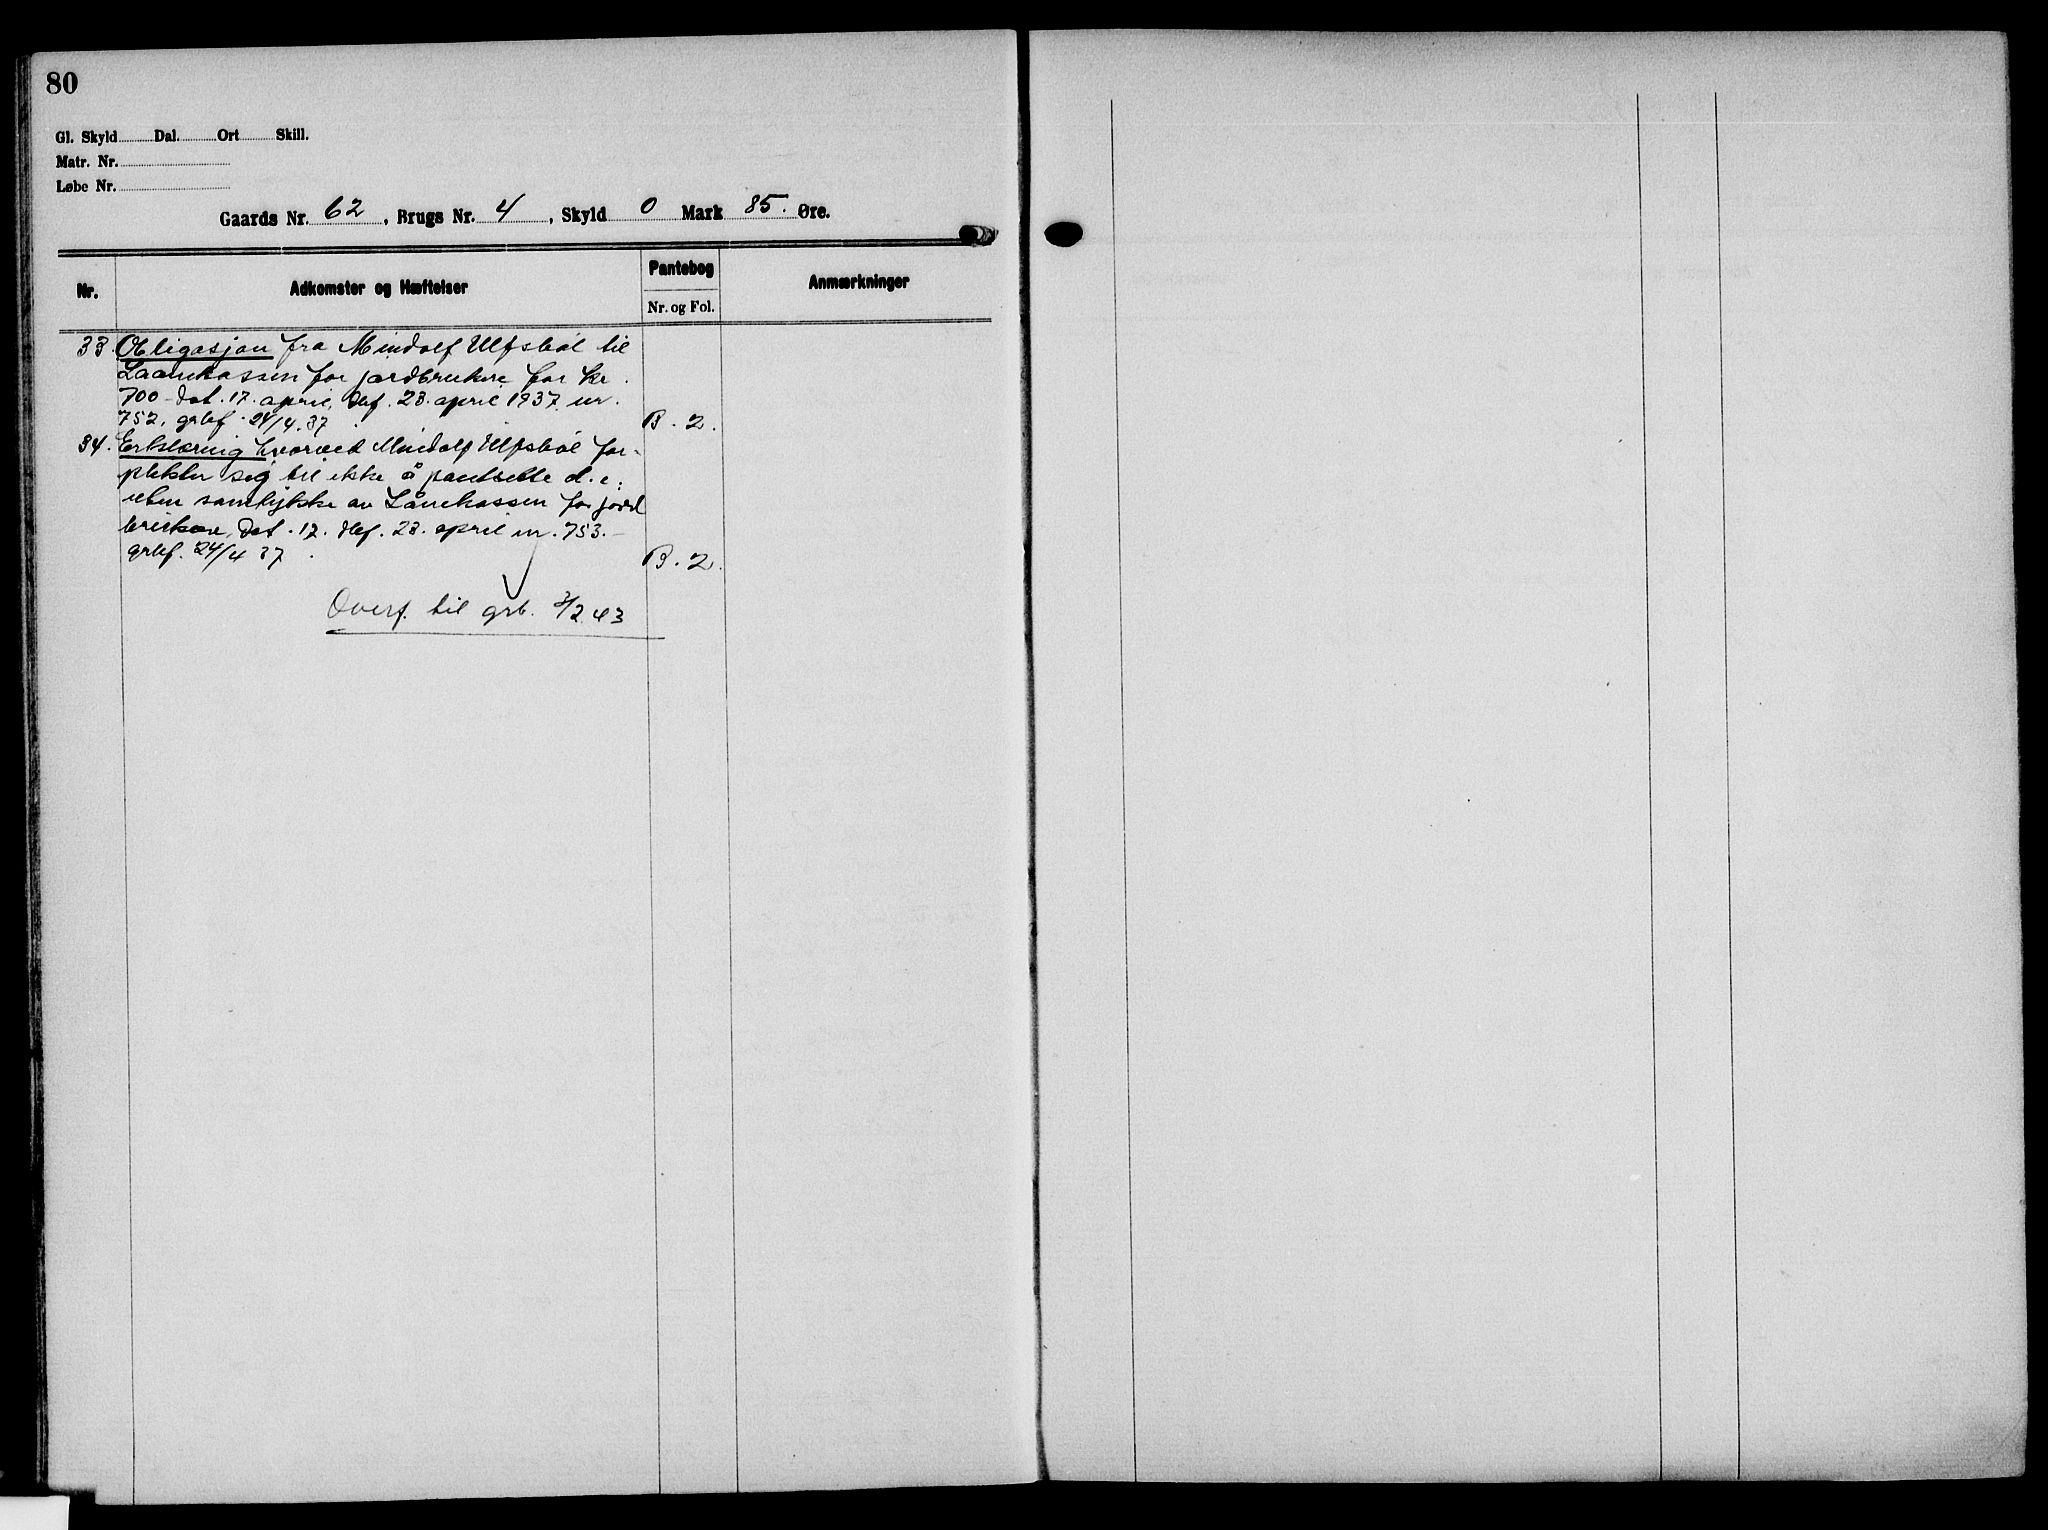 80
Gl. Skyld Dal. Ort Skill.
Matr. Nr.
Løbe Nr.
Gaards Nr. 62, Brugs Nr. 4, Skyld 0 Mark 85. Øre.
Nr. Adkomster og Hæftelser Pantebog Anmærkninger
Nr. og Fol.
33. Obligasjon fra Mindolf Ulfsbøl til
Laanekassen for jordbrukere for kr.
700 - dat. 17. april, tlef. 23. april 1937 nr.
752, grbf. 24/4.37. B. 2.
34. Erklæring hvorved Mindolf Ulfsbøl for-
plikter sig til ikke å pantsette d. e:
uten samtykke av Lånekassen for jord
brukere, dat. 17. tlef. 23. april nr. 753. -
grbf. 24/4 37. B. 2.
Overf. til grb. 3/2 43